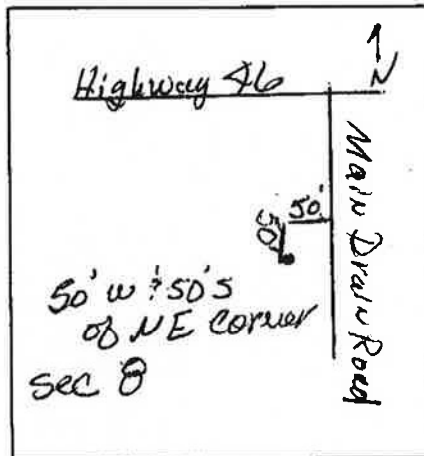 Highway 46
N
Main Drain Road
50'
50'
50' w & 50' s
of NE Corner
Sec 8